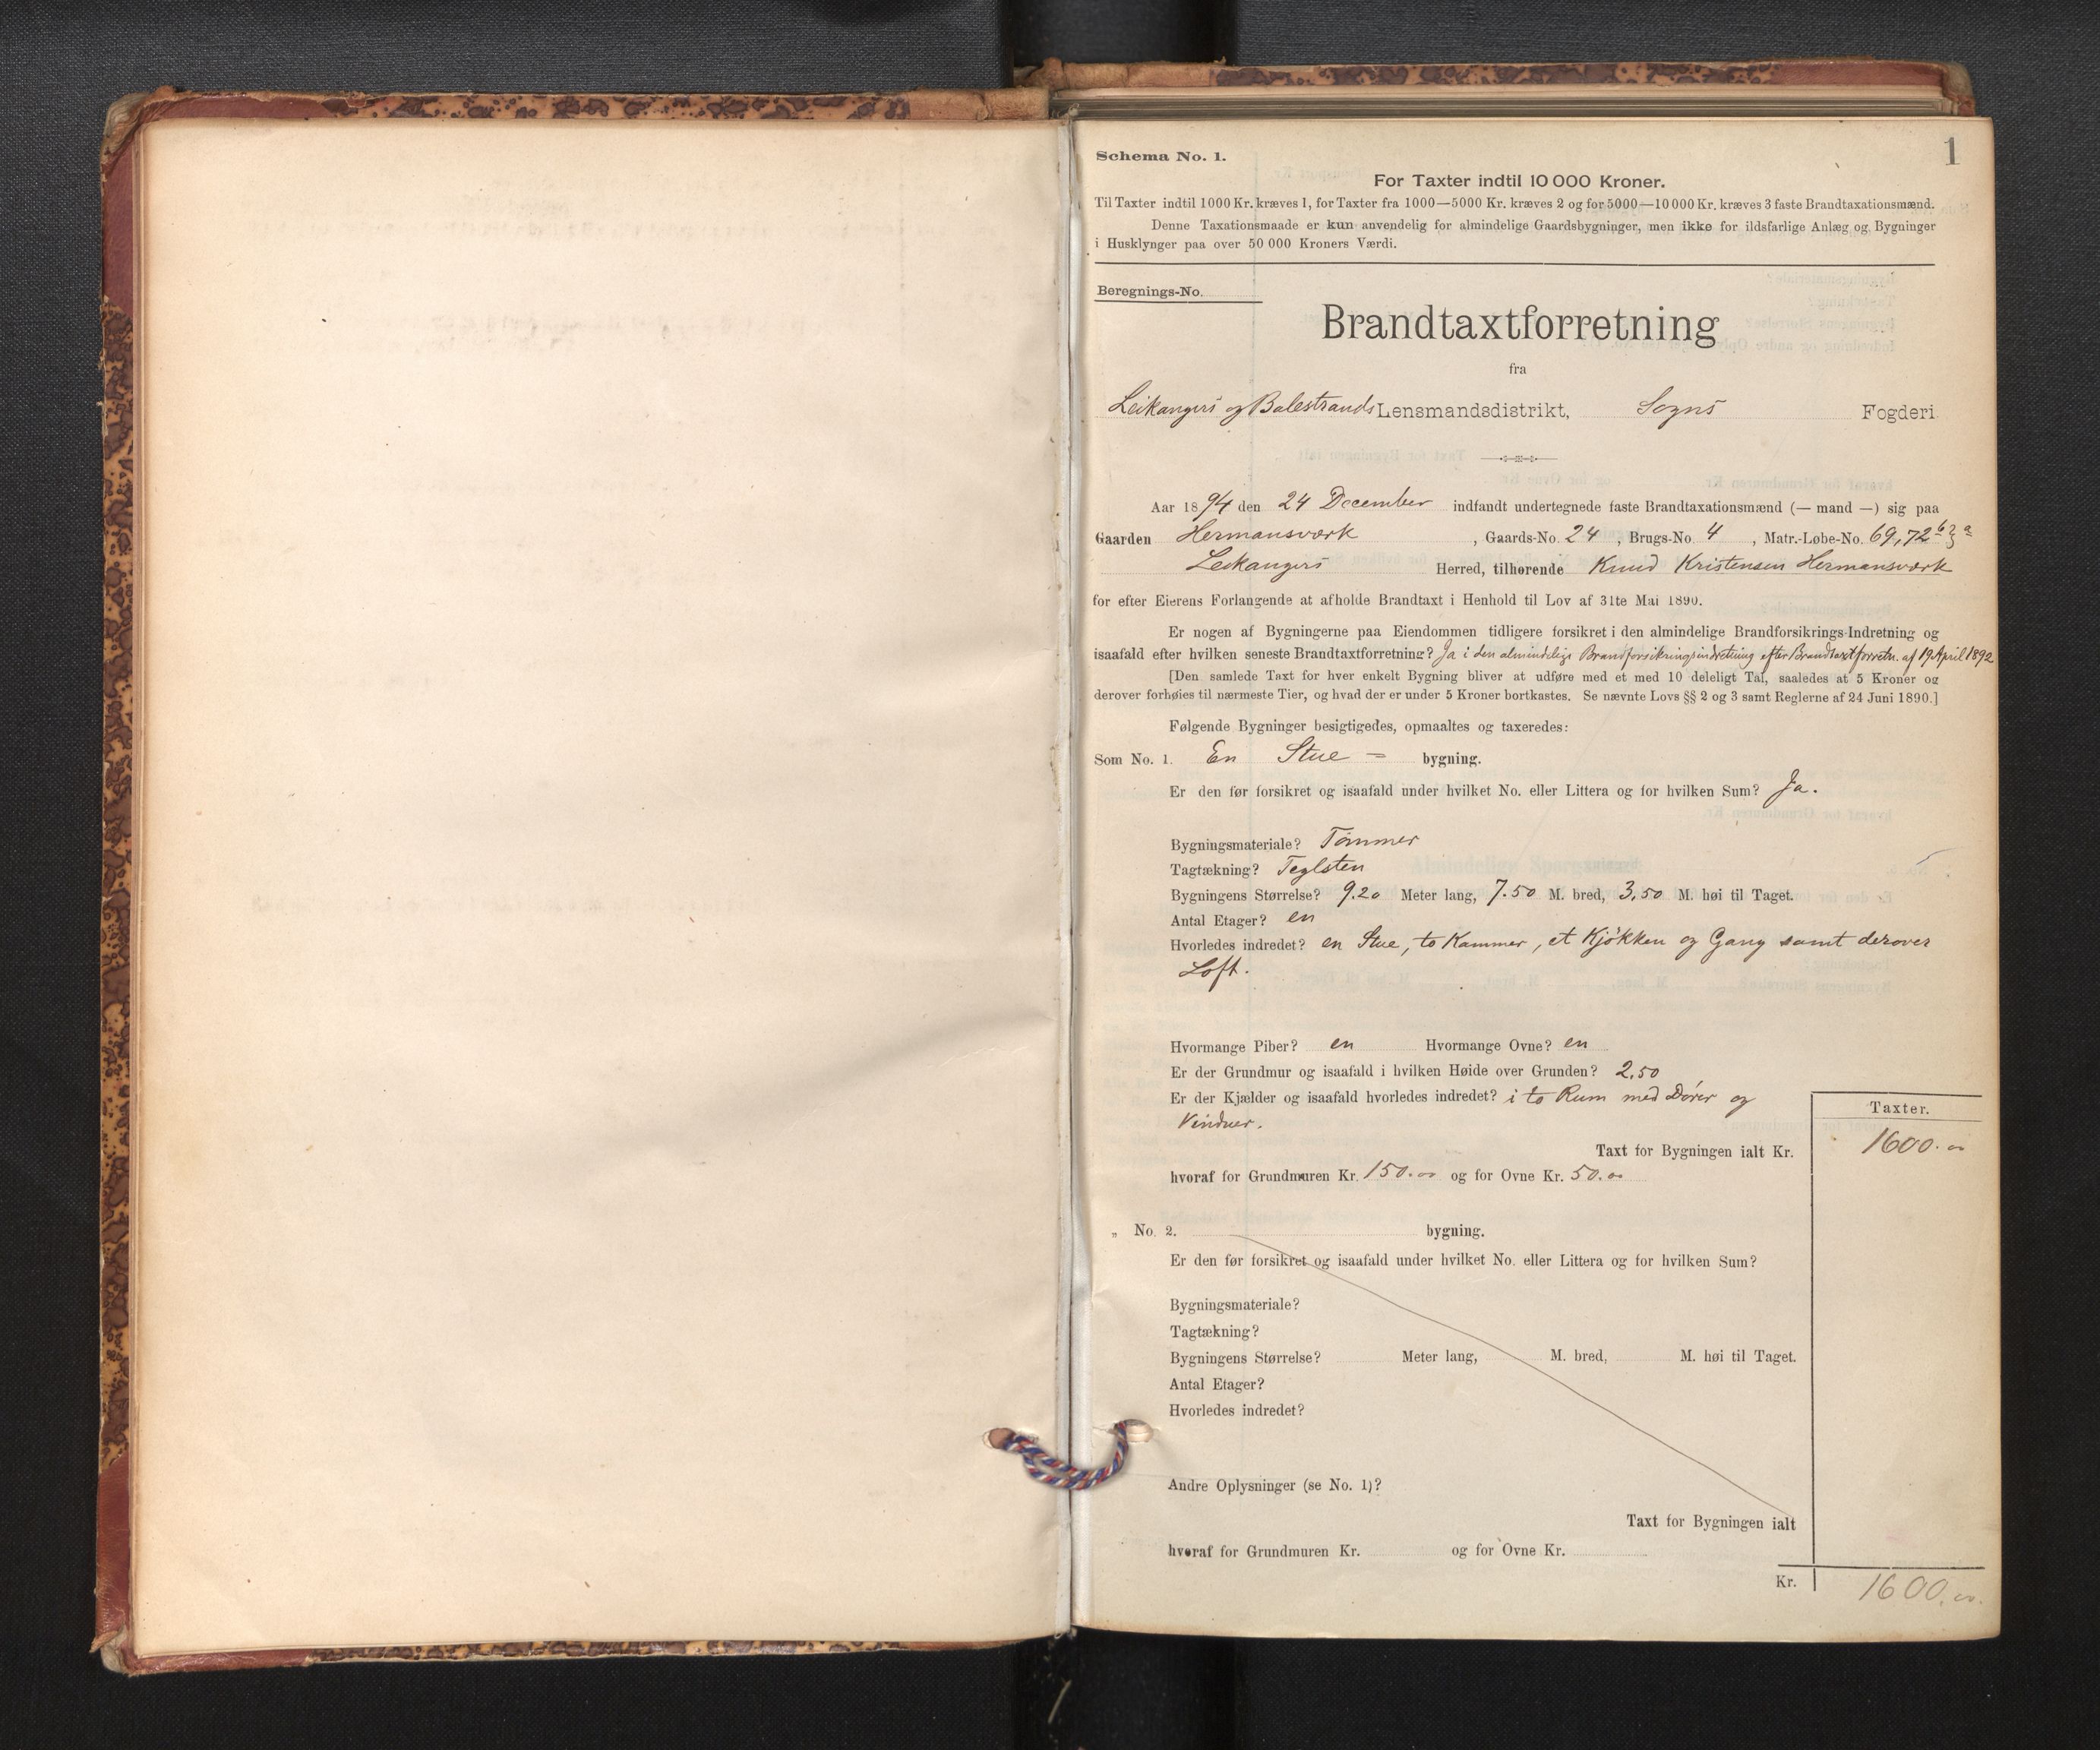 1
Schema No. 1.
For Taxter indtil 10 000 Kroner.
Til Taxter indtil 1000 Kr. kræves 1, for Taxter fra 1000—5000 Kr. kræves 2 og for 5000—10 000 Kr. kræves 3 faste Brandtaxationsmænd.
Denne Taxationsmaade er kun anvendelig for almindelige Gaardsbygninger, men ikke for ildsfarlige Anlæg og Bygninger
i Husklynger paa over 50 000 Kroners Værdi.
Beregnings-No.
Brandtaxtforretning
fra
Leikangers og Balestrands Lensmandsdistrikt, Sogns Fogderi
Aar 1894 den 24 December indfandt undertegnede faste Brandtaxationsmænd (— mand —) sig paa
Gaarden Hermansværk, Gaards-No. 24, Brugs-No. 4, Matr.-Løbe-No. 69, 72 b
Leikangers Herred, tilhørende Knud Kristensen Hermansværk
for efter Eierens Forlangende at afholde Brandtaxt i Henhold til Lov af 31te Mai 1890.
Er nogen af Bygningerne paa Eiendommen tidligere forsikret i den almindelige Brandforsikrings-Indretning og
isaafald efter hvilken seneste Brandtaxtforretning? Ja i den almindelige Brandforsikringsindretning efter Brandtaxtforretn. af 19 April 1892
[Den samlede Taxt for hver enkelt Bygning bliver at udføre med et med 10 deleligt Tal, saaledes at 5 Kroner og
derover forhøies til nærmeste Tier, og hvad der er under 5 Kroner bortkastes. Se nævnte Lovs §§ 2 og 3 samt Reglerne af 24 Juni 1890.]
Følgende Bygninger besigtigedes, opmaaltes og taxeredes:
Som No. 1. En Stue = bygning.
Er den før forsikret og isaafald under hvilket No. eller Littera og for hvilken Sum? Ja.
Bygningsmateriale? Tømmer
Tagtækning? Teglsten
Bygningens Størrelse? 9.20 Meter lang, 7.50 M. bred, 3,50 M. høi til Taget.
Antal Etager? en
Hvorledes indredet? en Stue, to Kammer, et Kjøkken og Gang samt derover
Loft.
Hvormange Piber? en Hvormange Ovne? en
Er der Grundmur og isaafald i hvilken Høide over Grunden? 2,50
Er der Kjælder og isaafald hvorledes indredet? i to Rum med Dører og
Vinduer.
Taxter.
Taxt for Bygningen ialt Kr. 1600.00
hvoraf for Grundmuren Kr. 150.00 og for Ovne Kr. 50.00
„ No. 2. bygning.
Er den før forsikret og isaafald under hvilket No. eller Littera og for hvilken Sum?
Bygningsmateriale?
Tagtækning?
Bygningens Størrelse? Meter lang, M. bred, M. høi til Taget.
Antal Etager?
Hvorledes indredet?
Andre Oplysninger (se No. 1)?
Taxt for Bygningen ialt
hvoraf for Grundmuren Kr. og for Ovne Kr.
Kr. 1600.00